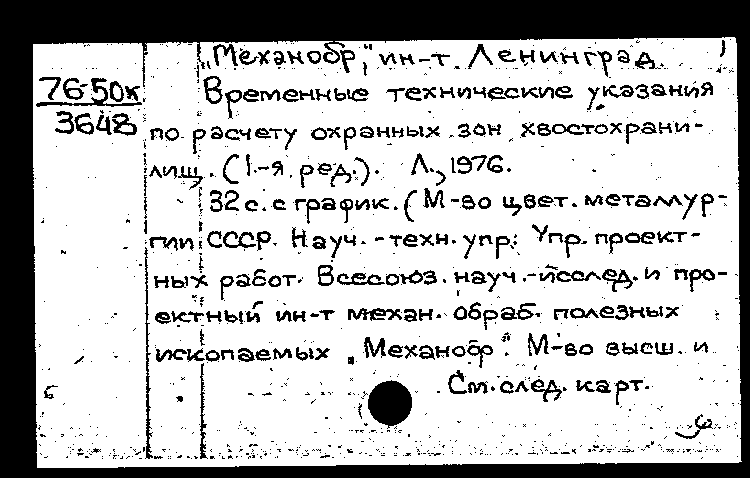 „Механобр", ин-т. Ленинград.
76-50к
3648
Временные технические указания
по расчету охранных зон хвостохрани-
лищ. (1-я ред.). Л., 1976.
32 с. с график. (М-во цвет. металлур-
гии СССР. Науч.-техн. упр. Упр. проект-
ных работ. Всесоюз. науч.-исслед. и про-
ектный ин-т механ. обраб. полезных
ископаемых „Механобр". М-во высш. и
См. след. карт.